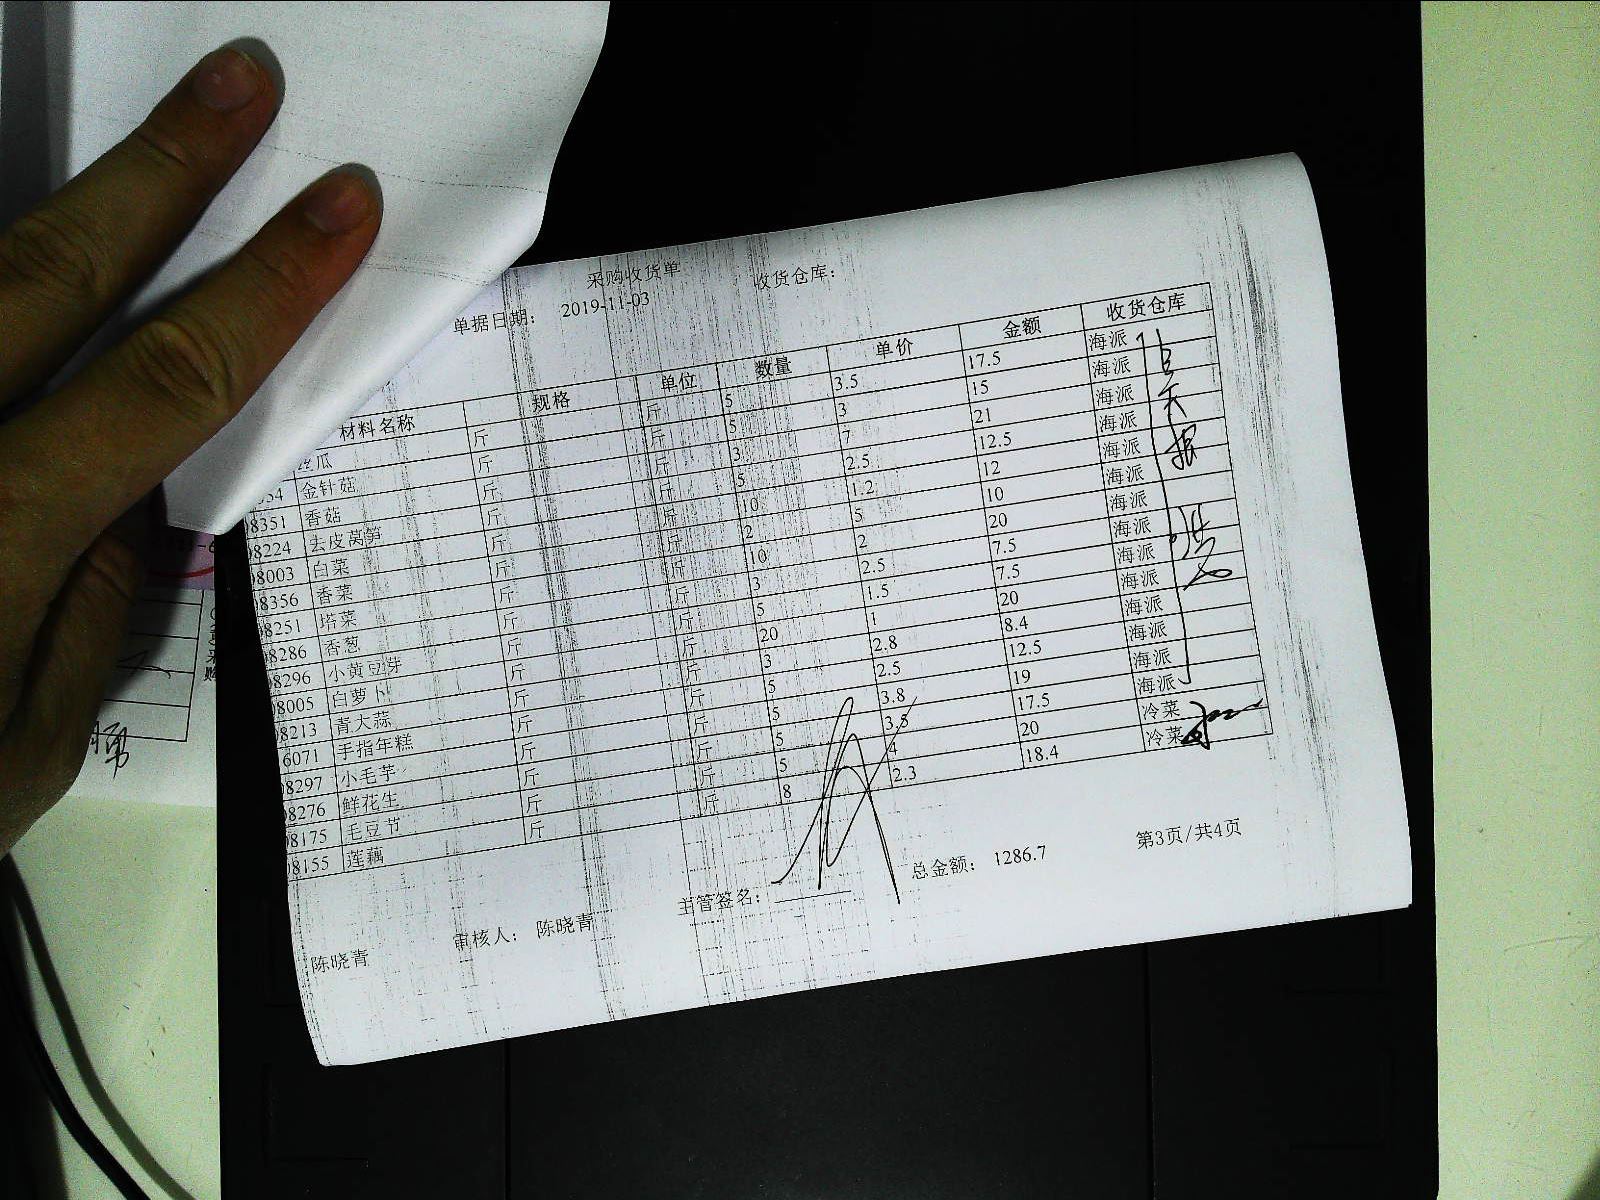 采购收货单
单据日期： 2019-11-03 收货仓库：
材料名称 规格 单位 数量 单价 金额 收货仓库
丝瓜 斤 斤 5 3.5 17.5 海派
54 金针菇 斤 斤 5 3 15 海派
8351 香菇 斤 斤 3 7 21 海派
08224 去皮莴笋 斤 斤 5 2.5 12.5 海派
08003 白菜 斤 斤 10 1.2 12 海派
08356 香菜 斤 斤 2 5 10 海派
08251 塔菜 斤 斤 10 2 20 海派
08286 香葱 斤 斤 3 2.5 7.5 海派
08296 小黄豆芽 斤 斤 5 1.5 7.5 海派
08005 白萝卜 斤 斤 20 1 20 海派
08213 青大蒜 斤 斤 3 2.8 8.4 海派
6071 手指年糕 斤 斤 5 2.5 12.5 海派
08297 小毛芋 斤 斤 5 3.8 19 海派
08276 鲜花生 斤 斤 5 3.5 17.5 海派
08175 毛豆节 斤 斤 5 4 20 冷菜
08155 莲藕 斤 斤 8 2.3 18.4 冷菜
陈晓青 审核人： 陈晓青 主管签名： 总金额： 1286.7 第3页/共4页